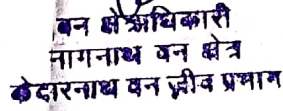 वन क्षेत्राधिकारी
नागनाथ वन क्षेत्र
केदारनाथ वन जीव प्रभाग